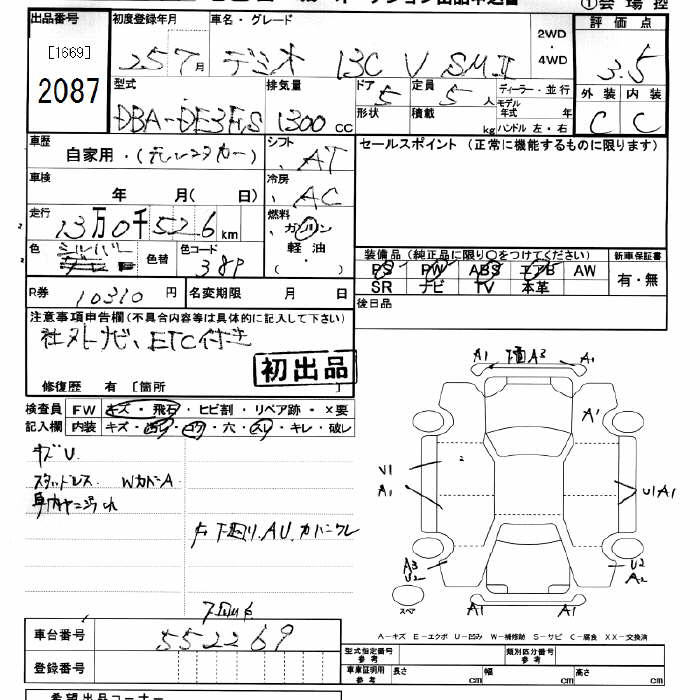 ①会場控
出品番号
[1669]
2087
初度登録年月
25 7月
車名・グレード
デミオ 13C V SMⅡ
2WD
・
4WD
評価点
3.5
外装 内装
C C
型式
DBA-DE3FS
排気量
1300 cc
ドア 5
形状
定員 5 人
積載 kg
ディーラー・並行
モデル年式 年
ハンドル 左・右
車歴
自家用・(元レンタカー)
シフト
AT
セールスポイント (正常に機能するものに限ります)
車検
年 月( 日)
冷房
AC
走行
13万0千526km
燃料
ガソリン
軽油
( ・ )
色
シルバー
色替
色コード
38P
装備品 (純正品に限り○をつけてください)
PS PW ABS エアB AW
SR ナビ TV 本革
新車保証書
有・無
R券
10310 円
名変期限 月 日
後日品
注意事項申告欄(不具合内容等は具体的に記入して下さい)
社外ナビ、ETC付き
初出品
修復歴 有 [箇所 ]
検査員
記入欄
FW キズ・飛石・ヒビ割・リペア跡・×要
内装 キズ・凹・穴・スリ・キレ・破レ
キズU
スタッドレス WカバーA
下回りAU.カバーワレ
下回りサ
A1 A3 A1
A'
U1
A1
U1A1
A3
U2
U2
A2
スペア
A1 A1
A-キズ E-エクボ U-凹み W-補修跡 S-サビ C-腐食 XX-交換済
車台番号
552269
登録番号
型式指定番号
参考
類別区分番号
参考
車庫証明用
参考
長さ cm 幅 cm 高さ cm
希望出品コーナー